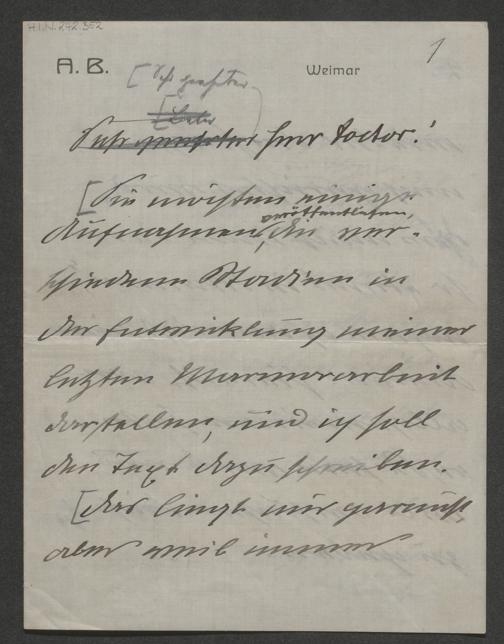 H.I.N. 242.352
1
A. B.
Weimar
[Sehr geehrter
[Lieber
Sehr geehrter Herr Doctor!
[Sie möchten einige
veröffentlichen,
Aufnahmen, die ver-
schiedene Stadien in
der Entwicklung meiner
letzten Marmorarbeit
darstellen, und ich soll
den Text dazu schreiben.
[Das liegt mir gewiss,
aber weil immer